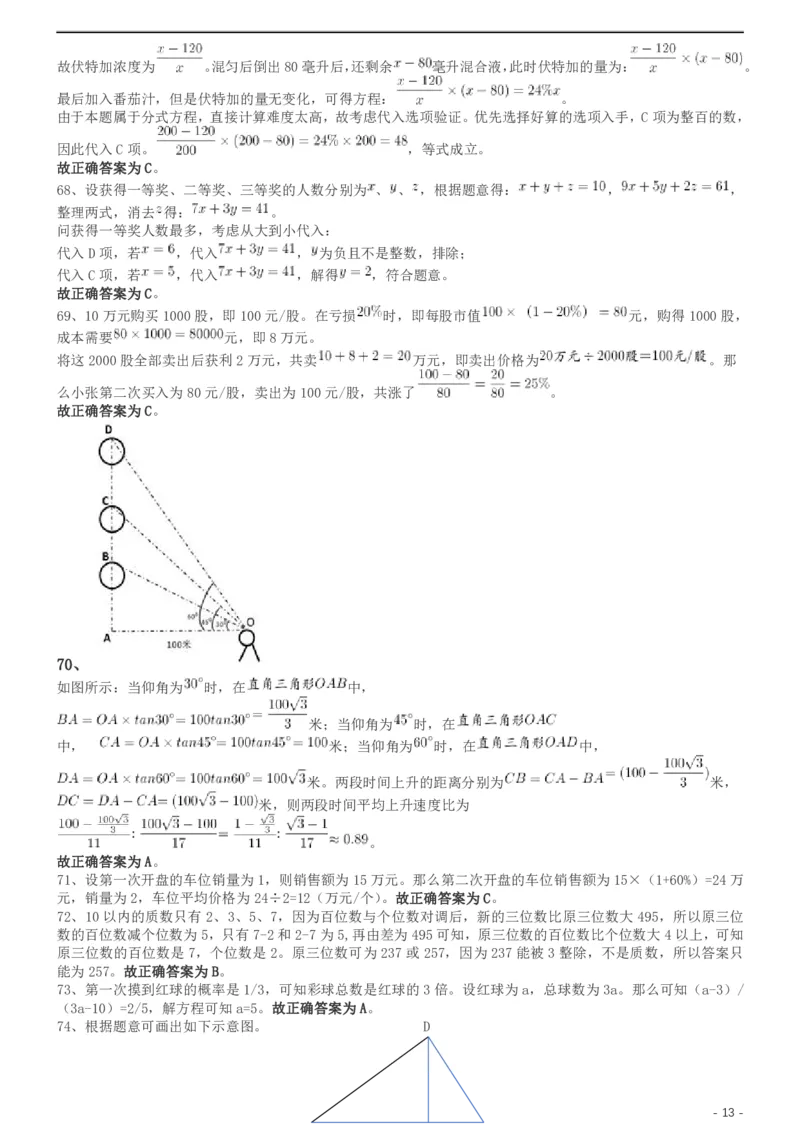 故伏特加浓度为 (x − 120)/x 。混匀后倒出80毫升后,还剩余x − 80毫升混合液,此时伏特加的量为: (x − 120)/x × (x − 80) 。
最后加入番茄汁,但是伏特加的量无变化,可得方程: (x − 120)/x × (x − 80) = 24%x 。
由于本题属于分式方程,直接计算难度太高,故考虑代入选项验证。优先选择好算的选项入手,C 项为整百的数,
因此代入C 项。 (200 − 120)/200 × (200 − 80) = 24% × 200 = 48 ,等式成立。
故正确答案为C。
68、设获得一等奖、二等奖、三等奖的人数分别为x、y、z,根据题意得:x + y + z = 10,9x + 5y + 2z = 61,
整理两式,消去z得:7x + 3y = 41。
问获得一等奖人数最多,考虑从大到小代入:
代入D 项,若x = 6,代入7x + 3y = 41,y为负且不是整数,排除;
代入C 项,若x = 5,代入7x + 3y = 41,解得y = 2,符合题意。
故正确答案为C。
69、10 万元购买1000 股,即100 元/股。在亏损20%时,即每股市值100 × (1−20%) = 80元,购得1000 股,
成本需要80 × 1000 = 80000元,即8 万元。
将这2000股全部卖出后获利2 万元,共卖10 + 8 + 2 = 20万元,即卖出价格为20万元÷2000股=100元/股。那
么小张第二次买入为80 元/股,卖出为100 元/股,共涨了 (100 − 80)/80 = 20/80 = 25% 。
故正确答案为C。
D
C
B
60°
45°
30°
O
A
100米
70、
如图所示:当仰角为30°时,在直角三角形OAB中,
BA = OA × tan30° = 100tan30° = 100√3/3 米;当仰角为45°时,在直角三角形OAC
中, CA = OA × tan45° = 100tan45° = 100米;当仰角为60°时,在直角三角形OAD中,
DA = OA × tan60° = 100tan60° = 100√3米。两段时间上升的距离分别为CB = CA − BA = (100 − 100√3/3)米,
DC = DA − CA = (100√3 − 100)米,则两段时间平均上升速度比为
(100 − 100√3/3)/11 : (100√3 − 100)/17 = (1 − √3/3)/11 : (√3 − 1)/17 ≈ 0.89。
故正确答案为A。
71、设第一次开盘的车位销量为1,则销售额为15 万元。那么第二次开盘的车位销售额为15×(1+60%)=24 万
元,销量为2,车位平均价格为24÷2=12(万元/个)。故正确答案为C。
72、10 以内的质数只有2、3、5、7,因为百位数与个位数对调后,新的三位数比原三位数大495,所以原三位
数的百位数减个位数为5,只有7-2和2-7 为5,再由差为495 可知,原三位数的百位数比个位数大4 以上,可知
原三位数的百位数是7,个位数是2。原三位数可为237 或257,因为237 能被3 整除,不是质数,所以答案只
能为257。故正确答案为B。
73、第一次摸到红球的概率是1/3,可知彩球总数是红球的3 倍。设红球为a,总球数为3a。那么可知(a-3)/
(3a-10)=2/5,解方程可知a=5。故正确答案为A。
74、根据题意可画出如下示意图。
D
- 13 -